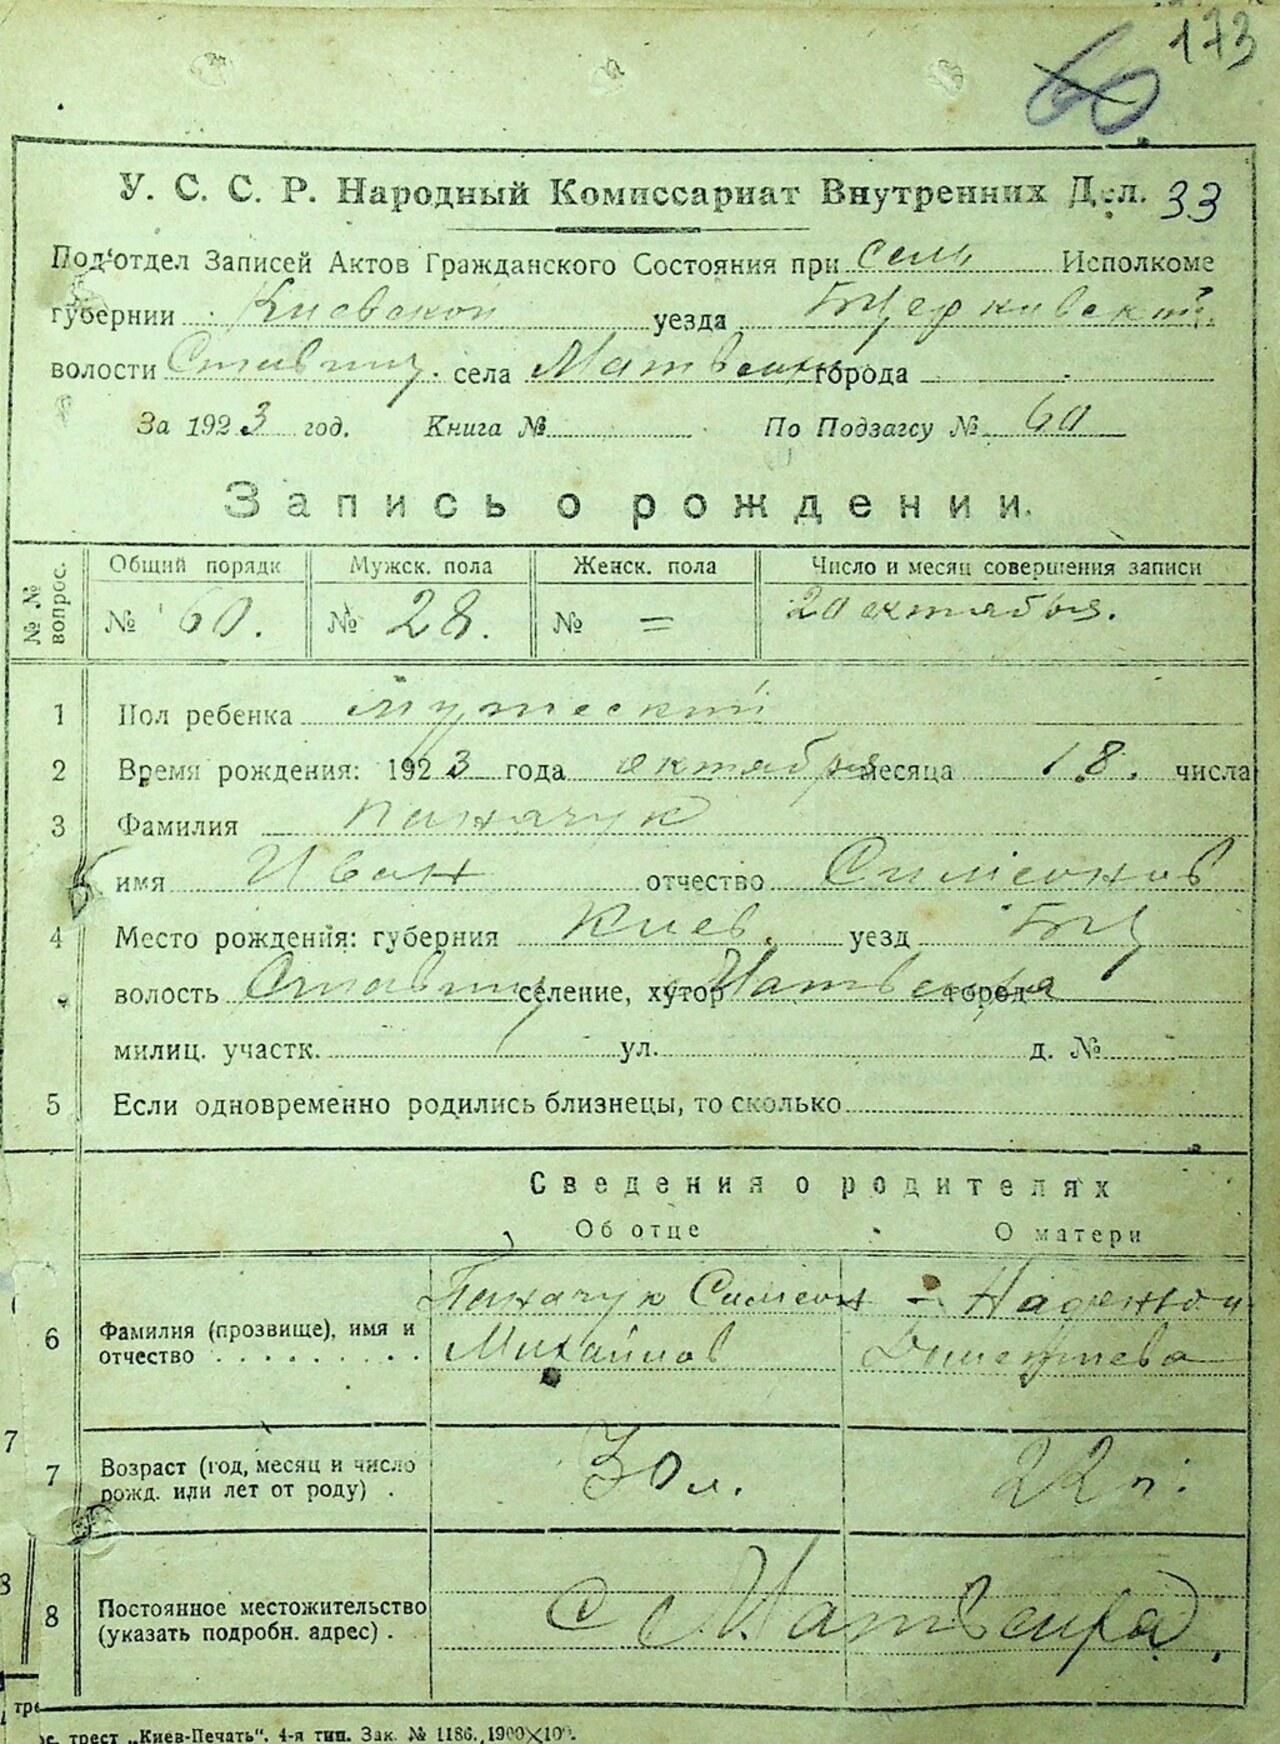 173
60
У. С. С. Р. Народный Комиссариат Внутренних Дел. 33
Подотдел Записей Актов Гражданского Состояния при сель Исполкоме
губернии Киевской уезда БЦерковской
волости Ставищ. села города
За 1923 год. Книга № По Подзагсу № 60
Запись о рождении.
№№ вопрос. Общий порядк Мужск. пола Женск. пола Число и месяц совершения записи
№ 60. № 28. № = 20 октября.
1 Пол ребенка мужеский
2 Время рождения: 1923 года октября месяца 18. числа
3 Фамилия
имя Иван отчество Симеонов
4 Место рождения: губерния Киев. уезд БЦ
волость Ставищ селение, хутор город
милиц. участк. ул. д. №
5 Если одновременно родились близнецы, то сколько
Сведения о родителях
Об отце О матери
6 Фамилия (прозвище), имя и отчество Симеон Михайлов
7 Возраст (год, месяц и число рожд. или лет от роду). 30 л. 22 л.
8 Постоянное местожительство (указать подробн. адрес). с
трест „Киев-Печать“. 4-я тип. Зак. № 1186.